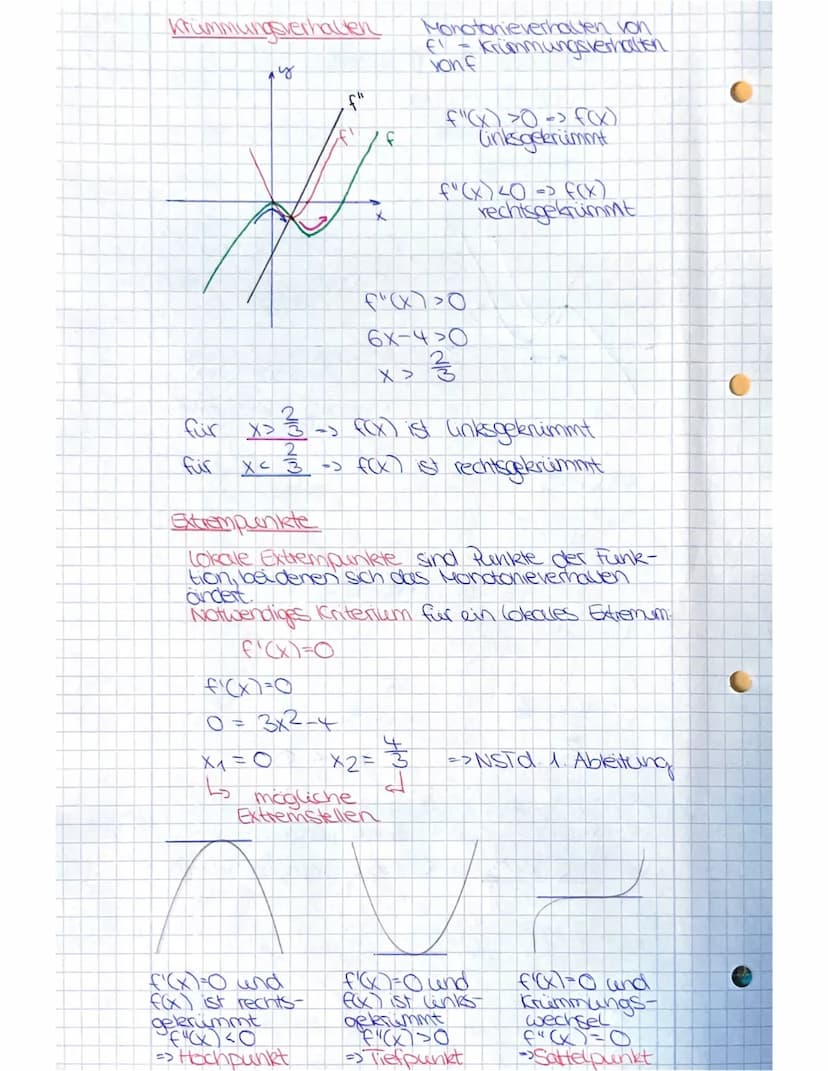 Krümmungsverhalten
Monotonieverhalten von
f' = Krümmungsverhalten
von f
y
f"
f'
f
x
f"(x) > 0 => f(x)
linksgekrümmt
f"(x) < 0 => f(x)
rechtsgekrümmt
f"(x) > 0
6x-4 > 0
x > 2/3
für x > 2/3 => f(x) ist linksgekrümmt
für x < 2/3 => f(x) ist rechtsgekrümmt
Extrempunkte
Lokale Extrempunkte sind Punkte der Funk-
tion, bei denen sich das Monotonieverhalten
ändert.
Notwendiges Kriterium für ein lokales Extremum
f'(x)=0
f'(x)=0
0 = 3x2-4
x1 = 0 x2 = 4/3 => NSTd. 1. Ableitung
mögliche
Extremstellen
f'(x)=0 und
f(x) ist rechts-
gekrümmt
f"(x) < 0
=> Hochpunkt
f'(x)=0 und
f(x) ist links-
gekrümmt
f"(x) > 0
=> Tiefpunkt
f'(x)=0 und
Krümmungs-
wechsel
f"(x) = 0
=> Sattelpunkt